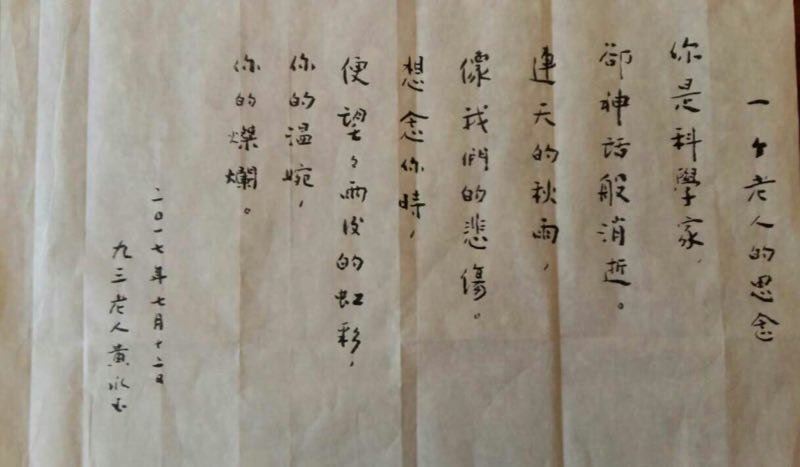 一个老人的思念
你是科學家，
卻神話般消逝。
連天的秋雨，
像我們的悲傷。
想念你時，
便望望雨後的虹彩，
你的温婉，
你的燦爛。
二〇一七年七月十二日
九三老人黄永玉